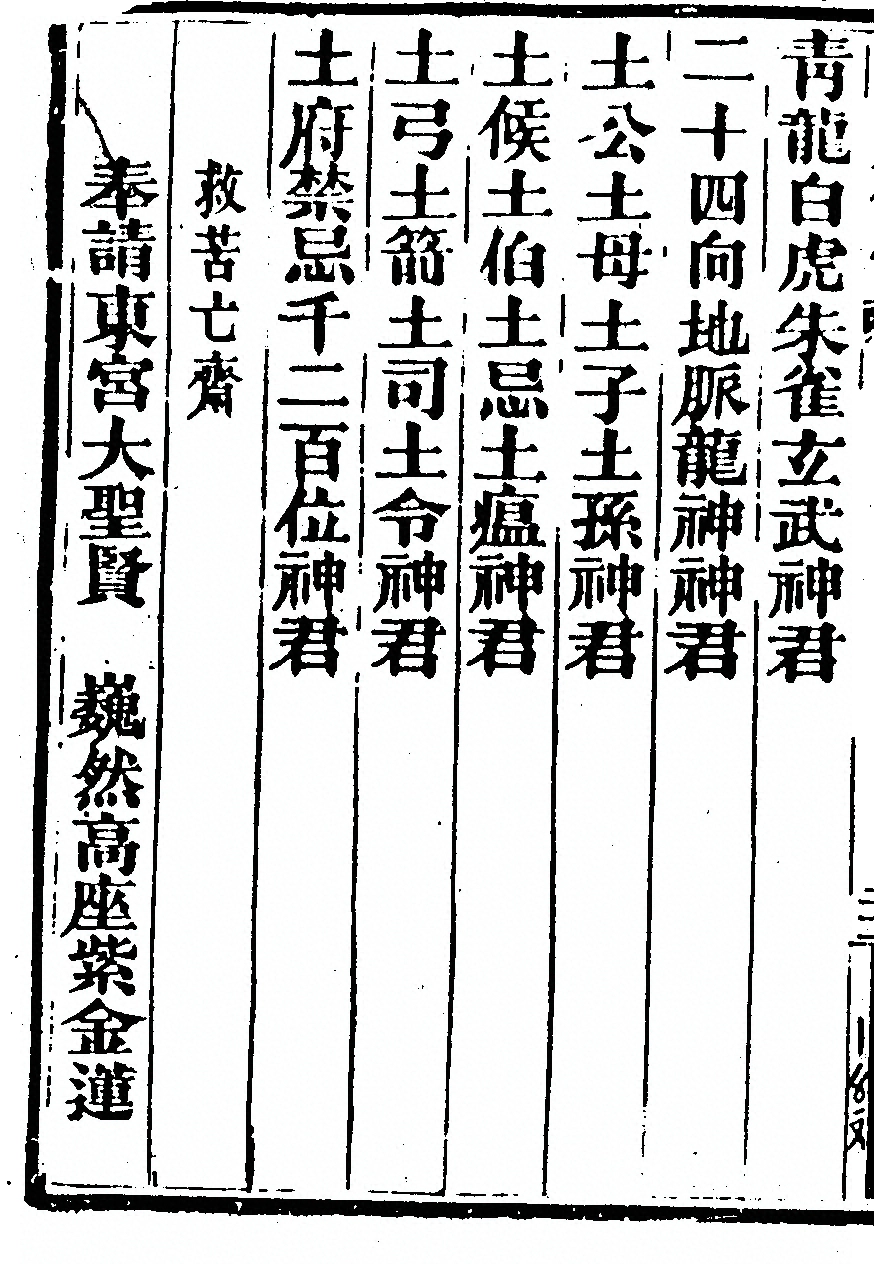 青龍白虎朱雀玄武神君
二十四向地脈龍神神君
土公土母土子土孫神君
土候土伯土忌土瘟神君
土弓土箭土司土令神君
土府禁忌千二百位神君
救苦亡齋
奉請東宮大聖賢　巍然高座紫金蓮